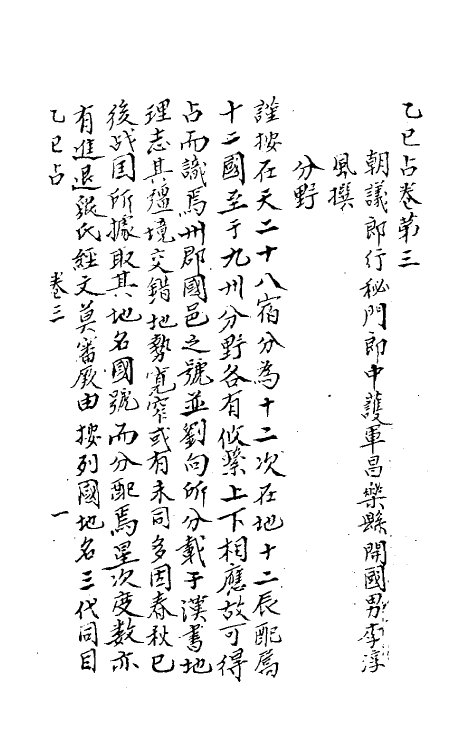 乙巳占卷第三
朝議郎行秘門郎中護軍昌樂縣開國男李淳
風撰
分野
謹按在天二十八宿分為十二次在地十二辰配屬
十二國至于九州分野各有攸繫上下相應故可得
占而識焉州郡國邑之號並劉向所分載于漢書地
理志其疆境交錯地勢寬窄或有未同多因春秋已
後战国所據取其地名國號而分配焉星次度數亦
有進退張氏經文莫審厥由按列國地名三代同目
乙巳占 卷三 一